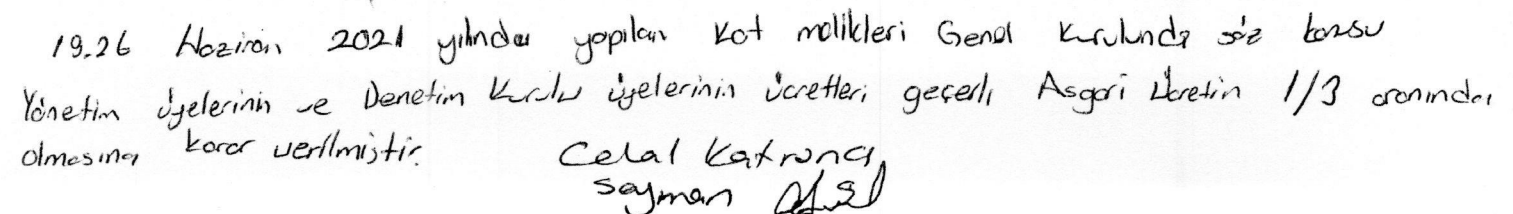 19.26 Haziran 2021 yılında yapılan Kat malikleri Genel Kurulunda söz konusu
Yönetim üyelerinin ve Denetim Kurulu üyelerinin ücretleri geçerli Asgari Ücretin 1/3 oranında
olmasına karar verilmiştir.
Celal Katrancı
Sayman